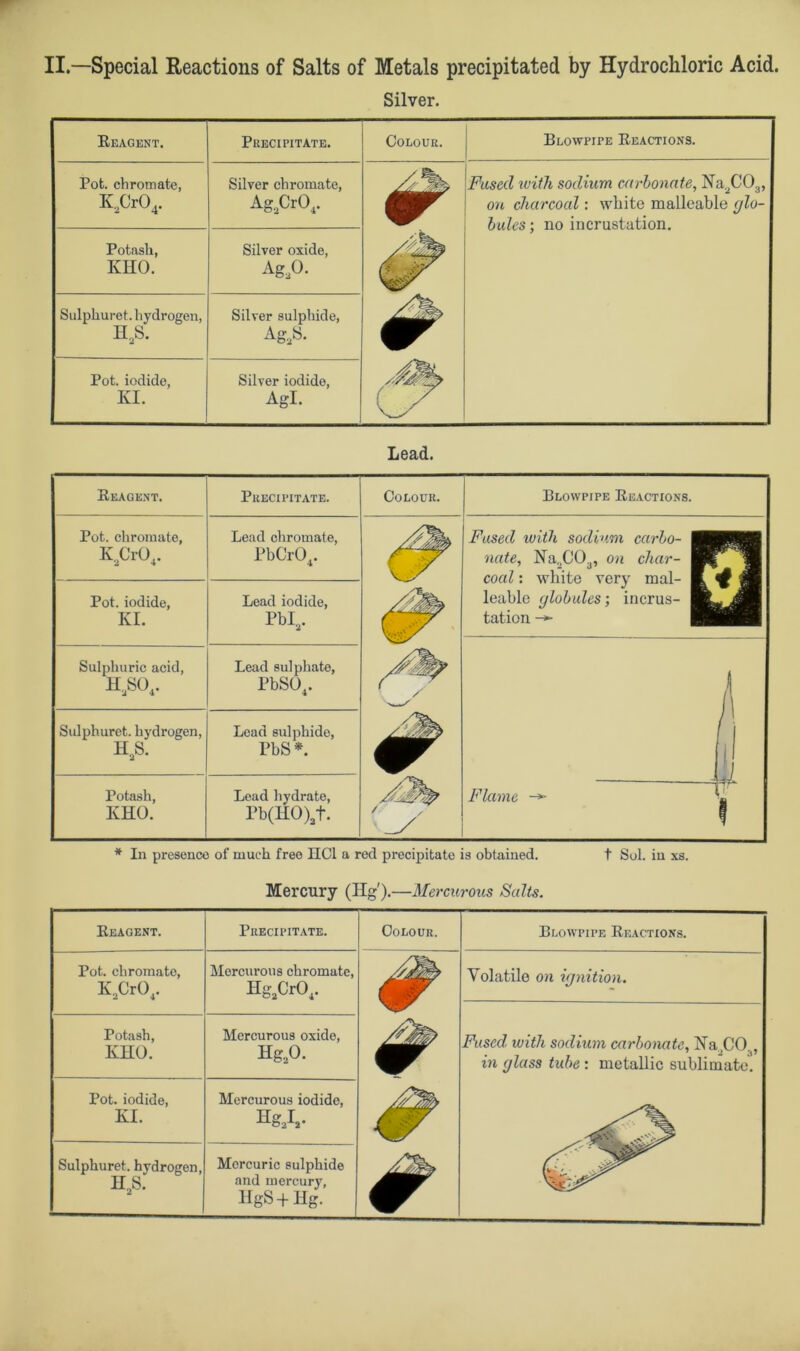 II.—Special Reactions of Salts of Metals precipitated by Hydrochloric Acid.
Silver.
Reagent. Precipitate. Colour. Blowpipe Reactions.
Pot. chromate,
K₂CrO₄.
Silver chromate,
Ag₂CrO₄.
Fused with sodium carbonate, Na₂CO₃,
on charcoal: white malleable glo-
bules; no incrustation.
Potash,
KHO.
Silver oxide,
Ag₂O.
Sulphuret. hydrogen,
H₂S.
Silver sulphide,
Ag₂S.
Pot. iodide,
KI.
Silver iodide,
AgI.
Lead.
Reagent. Precipitate. Colour. Blowpipe Reactions.
Pot. chromate,
K₂CrO₄.
Lead chromate,
PbCrO₄.
Fused with sodium carbo-
nate, Na₂CO₃, on char-
coal: white very mal-
leable globules; incrus-
tation →
Pot. iodide,
KI.
Lead iodide,
PbI₂.
Sulphuric acid,
H₂SO₄.
Lead sulphate,
PbSO₄.
Sulphuret. hydrogen,
H₂S.
Lead sulphide,
PbS*.
Potash,
KHO.
Lead hydrate,
Pb(HO)₂†.
Flame →
* In presence of much free HCl a red precipitate is obtained. † Sol. in xs.
Mercury (Hg′).—Mercurous Salts.
Reagent. Precipitate. Colour. Blowpipe Reactions.
Pot. chromate,
K₂CrO₄.
Mercurous chromate,
Hg₂CrO₄.
Volatile on ignition.
Potash,
KHO.
Mercurous oxide,
Hg₂O.
Fused with sodium carbonate, Na₂CO₃,
in glass tube: metallic sublimate.
Pot. iodide,
KI.
Mercurous iodide,
Hg₂I₂.
Sulphuret. hydrogen,
H₂S.
Mercuric sulphide
and mercury,
HgS + Hg.